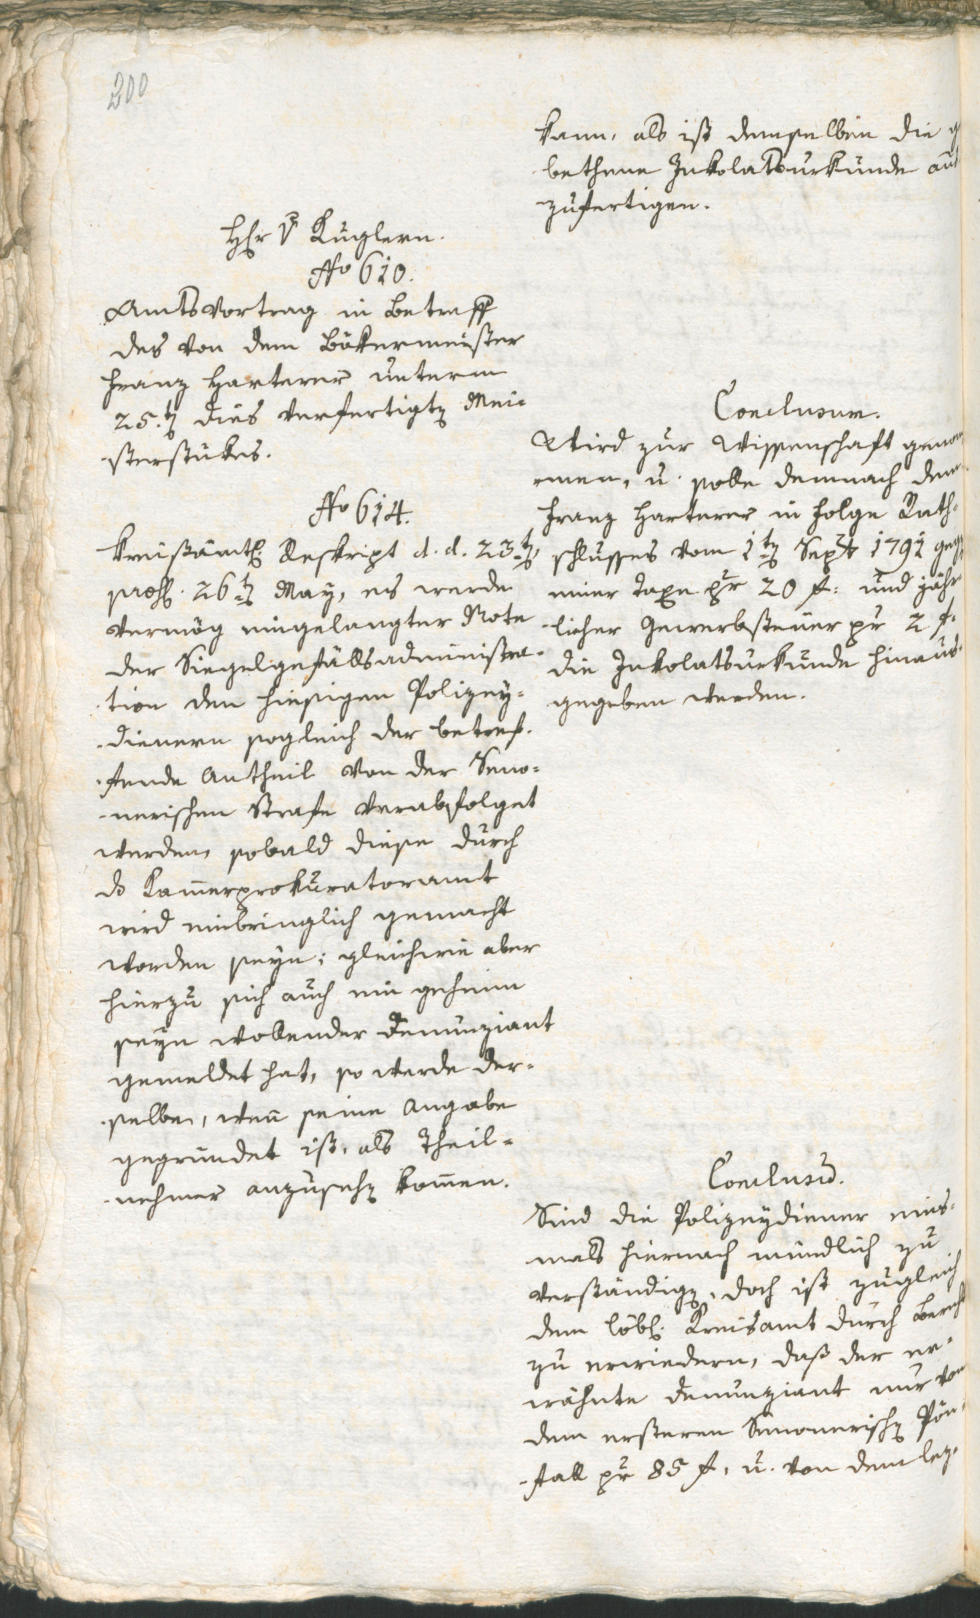 200
Hr v Kuglern.
No 610.
Amtsvortrag in Betreff
des von dem Bökermeister
Franz Harterer unterm
25.t dies verfertigt Mei=
sterstükes.
No 614.
Kreisämtl Reskript d. d. 23t
präs. 26t May, es werde
vermög eingelangter Note
der Siegelgefällsadministra=
tion den hiesigen Polizey=
dienern sogleich der betref=
fende Antheil von der Seno=
nerischen Strafe verabfolget
werden, sobald diese durch
ds Kamerprokuratoramt
wird einbringlich gemacht
worden seyn; gleichwie aber
hierzu sich auch ein geheim
seyn wollender Denunziant
gemeldet hat, so werde der=
selbe, wen seine Angabe
gegründet ist, als Theil=
nehmer anzuseh komen.
kann, als ist demselben die g
bethene Inkolatsurkunde aus
zufertigen.
Conclusum.
Wird zur Wissenschaft genom
men, u. solle demnach dem
Franz Harterer in Folge Rath=
schlusses vom 1t Sept 1791 geg
einer Taxe pr 20 f. und jähr
licher Gewerbsteuer pr 2 f.
die Inkolatsurkunde hinaus=
gegeben werden.
Conclusu.
Sind die Polizeydiener eins=
mals hiernach mündlich zu
verständig, doch ist zugleich
dem löbl. Kreisamt durch Bericht
zu erwiedern, daß der er=
wähnte Denunziant nur von
dem ersteren Senonerisch Pön=
fall pr 85 f, u. von dem lez=